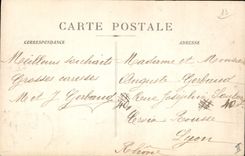 CARTE POSTALE
CORRESPONDANCE
ADRESSE
Meilleurs souhaits
Grosses caresses
M et J Gerbaud
Madame et Monsieur
Auguste Gerbaud
Rue Joséphin Soulary
Croix Rousse
Lyon
Rhône